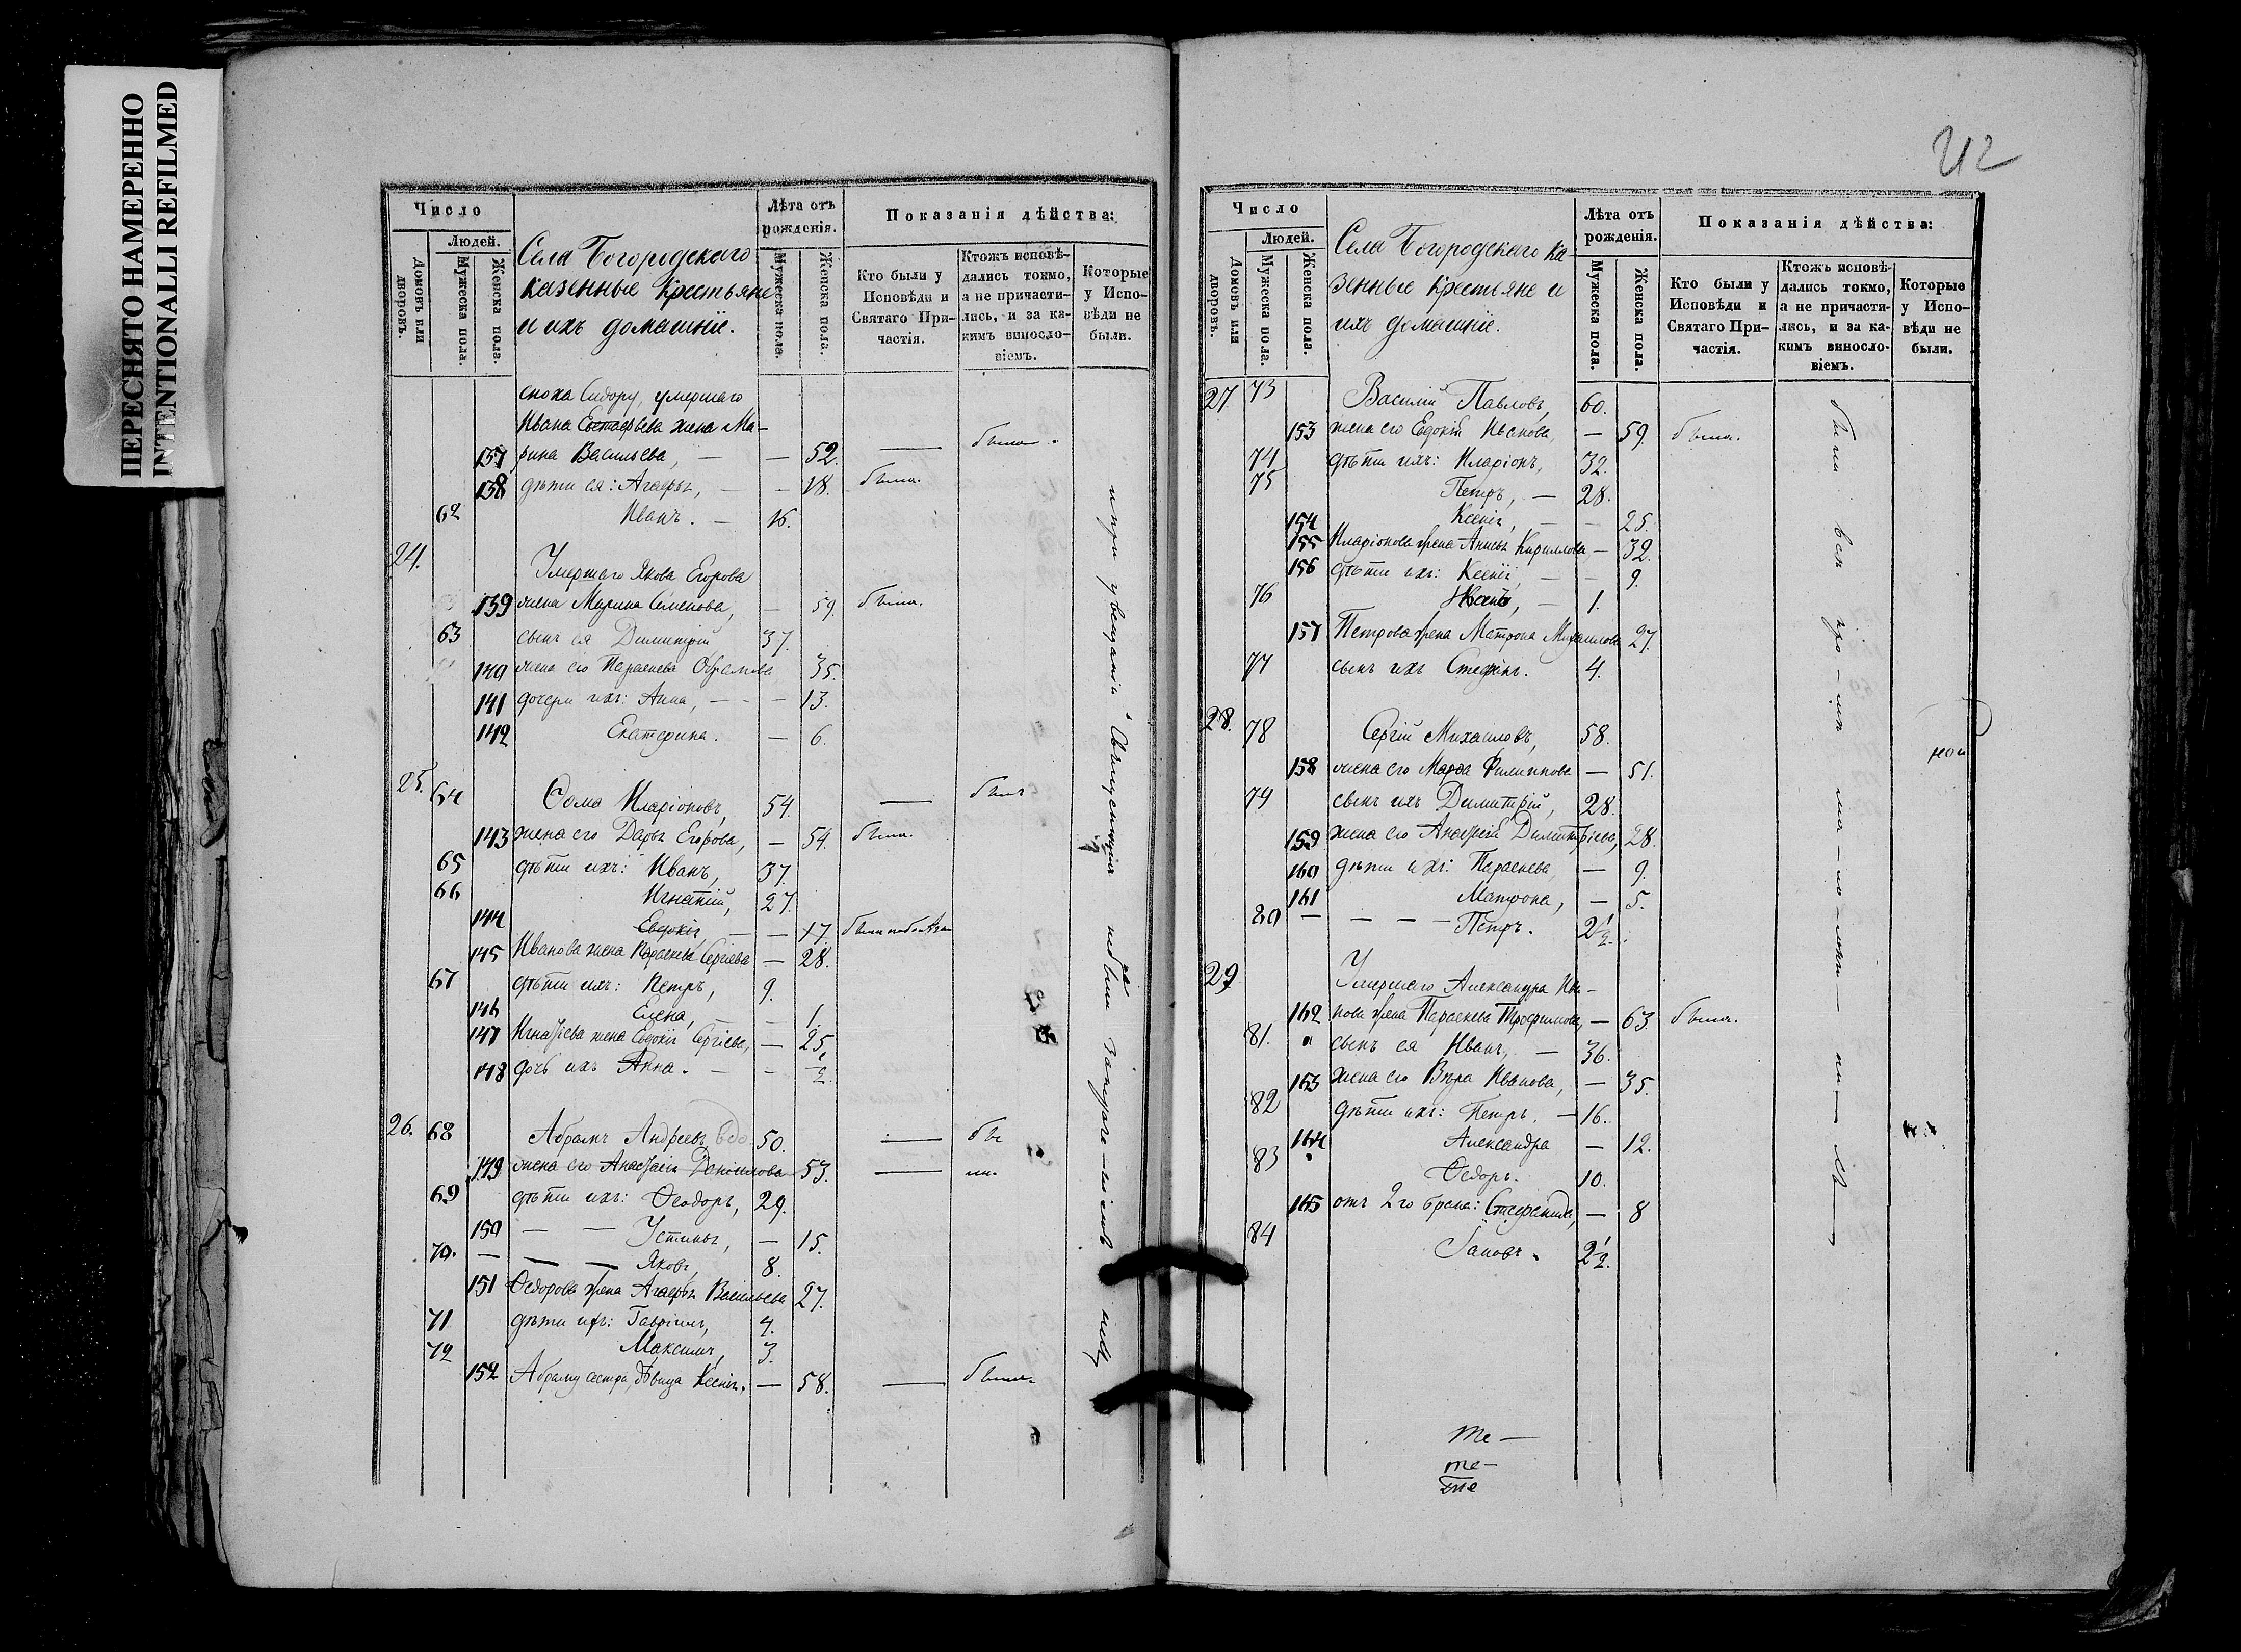 ПЕРЕСНЯТО НАМЕРЕННО
INTENTIONALLI REFILMED
Число
Людей.
Домовъ или дворовъ.
Мужеска пола.
Женска пола.
Села Богородскаго
казенные крестьяне
и ихъ домашніе.
Лѣта отъ рожденія.
Мужеска пола.
Женска пола.
Показанія дѣйства:
Кто были у Исповѣди и Святаго Причастія.
Ктожъ исповѣдались токмо, а не причастились, и за какимъ винословіемъ.
Которые у Исповѣди не были.
сноха Сидору, умершаго
Ивана Евстафьева жена Ма-
137 рина Васильева, — — 52. — была.
138 дѣти ея: Агафья, — — 18. была.
62 Иванъ. — 16.
24. Умершаго Якова Егорова
139 жена Марина Семенова, — 59. была.
63 сынъ ея Димитрій 37.
140 жена его Параскева 35.
141 дочери ихъ: Анна, — — 13.
142 Екатерина. — 6.
25. 64 Ѳома Иларіоновъ, 54. — былъ
143 жена его Дарья Егорова, — 54. была.
65 дѣти ихъ: Иванъ, 37.
66 Игнатій, 27.
144 — — 17.
145 Иванова жена Параскева Сергіева — 28.
67 дѣти ихъ: Петръ, 9.
146 Елена, — — 1.
147 Игнатіева жена Евдокія Сергіева, — 25.
148 дочь ихъ Анна. — — ½.
26. 68 Абрамъ Андреевъ 50. —
149 жена его Анастасія Данилова 53. —
69 дѣти ихъ: Ѳеодоръ, 29.
150 — — Устинья, — 15.
70. — — Яковъ, 8.
151 Ѳедорова жена Агафья Васильева 27.
71 дѣти ихъ: Гавріилъ, 4.
72 Максимъ, 3.
152 Абраму сестра, дѣвица Ксенія. — 58. — была
212
Число
Людей.
Домовъ или дворовъ.
Мужеска пола.
Женска пола.
Села Богородскаго ка-
зенные крестьяне и
ихъ домашніе.
Лѣта отъ рожденія.
Мужеска пола.
Женска пола.
Показанія дѣйства:
Кто были у Исповѣди и Святаго Причастія.
Ктожъ исповѣдались токмо, а не причастились, и за какимъ винословіемъ.
Которые у Исповѣди не были.
27. 73 Василій Павловъ, 60.
153 жена его Евдокія Иванова, — 59. была.
74 дѣти ихъ: Иларіонъ, 32.
75 Петръ, — 28.
154 Ксенія, — — 25.
155 Иларіонова жена Анисья Кириллова, — 32.
156 дѣти ихъ: Ксенія, — — 9.
76 Иванъ, — 1.
157 Петрова жена Матрона Михаилова 27.
77 сынъ ихъ Стефанъ. 4.
28. 78 Сергій Михаиловъ, 58.
158 жена его Марѳа Филиппова — 51.
79 сынъ ихъ Димитрій, 28.
159 жена его Анастасія Димитріева, 28.
160 дѣти ихъ: Параскева, — 9.
161 Матрона, — 5.
80 — — — — Петръ. 2½.
29 Умершаго Александра Ива-
162 нова жена Параскева Трофимова, — 63. была.
81. сынъ ея Иванъ, — 36.
163 жена его Вѣра Иванова, — 35.
82 дѣти ихъ: Петръ, — 16.
164 Александра — 12.
83 Ѳедоръ. 10.
165 отъ 2го брака: Стефанида, — 8
84 Іаковъ. 2½.